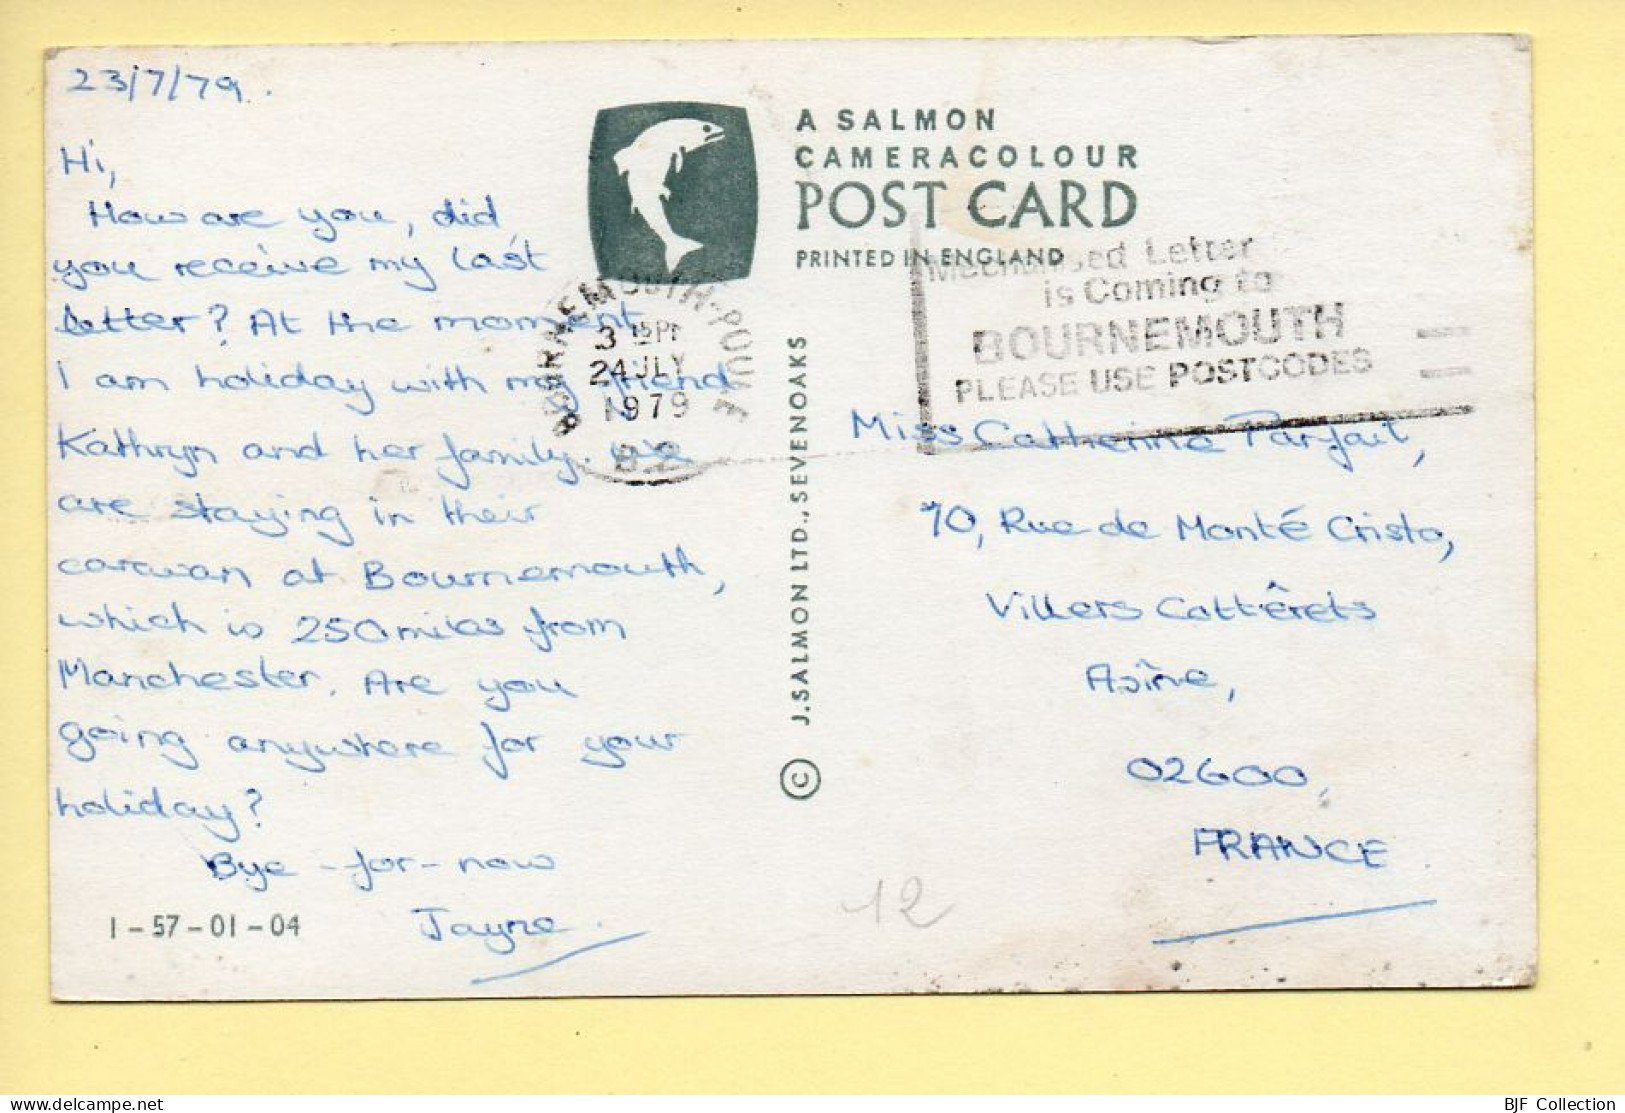 23/7/79.
Hi,
How are you, did
you receive my last
letter? At the moment
I am holiday with my friend
Kathryn and her family. We
are staying in their
caravan at Bournemouth,
which is 250 miles from
Manchester. Are you
going anywhere for your
holiday?
Bye-for-now
Jayne.
1-57-01-04
A SALMON
CAMERACOLOUR
POST CARD
PRINTED IN ENGLAND
BOURNEMOUTH-POOLE
3 15PM
24 JLY
1979
Mechanised Letter
is Coming to
BOURNEMOUTH
PLEASE USE POSTCODES
© J. SALMON LTD., SEVENOAKS
Miss Catherine Parfait,
70, Rue de Monté Cristo,
Villers Cottêrets
Asîne,
02600,
FRANCE.
12
delcampe.net
BJF Collection